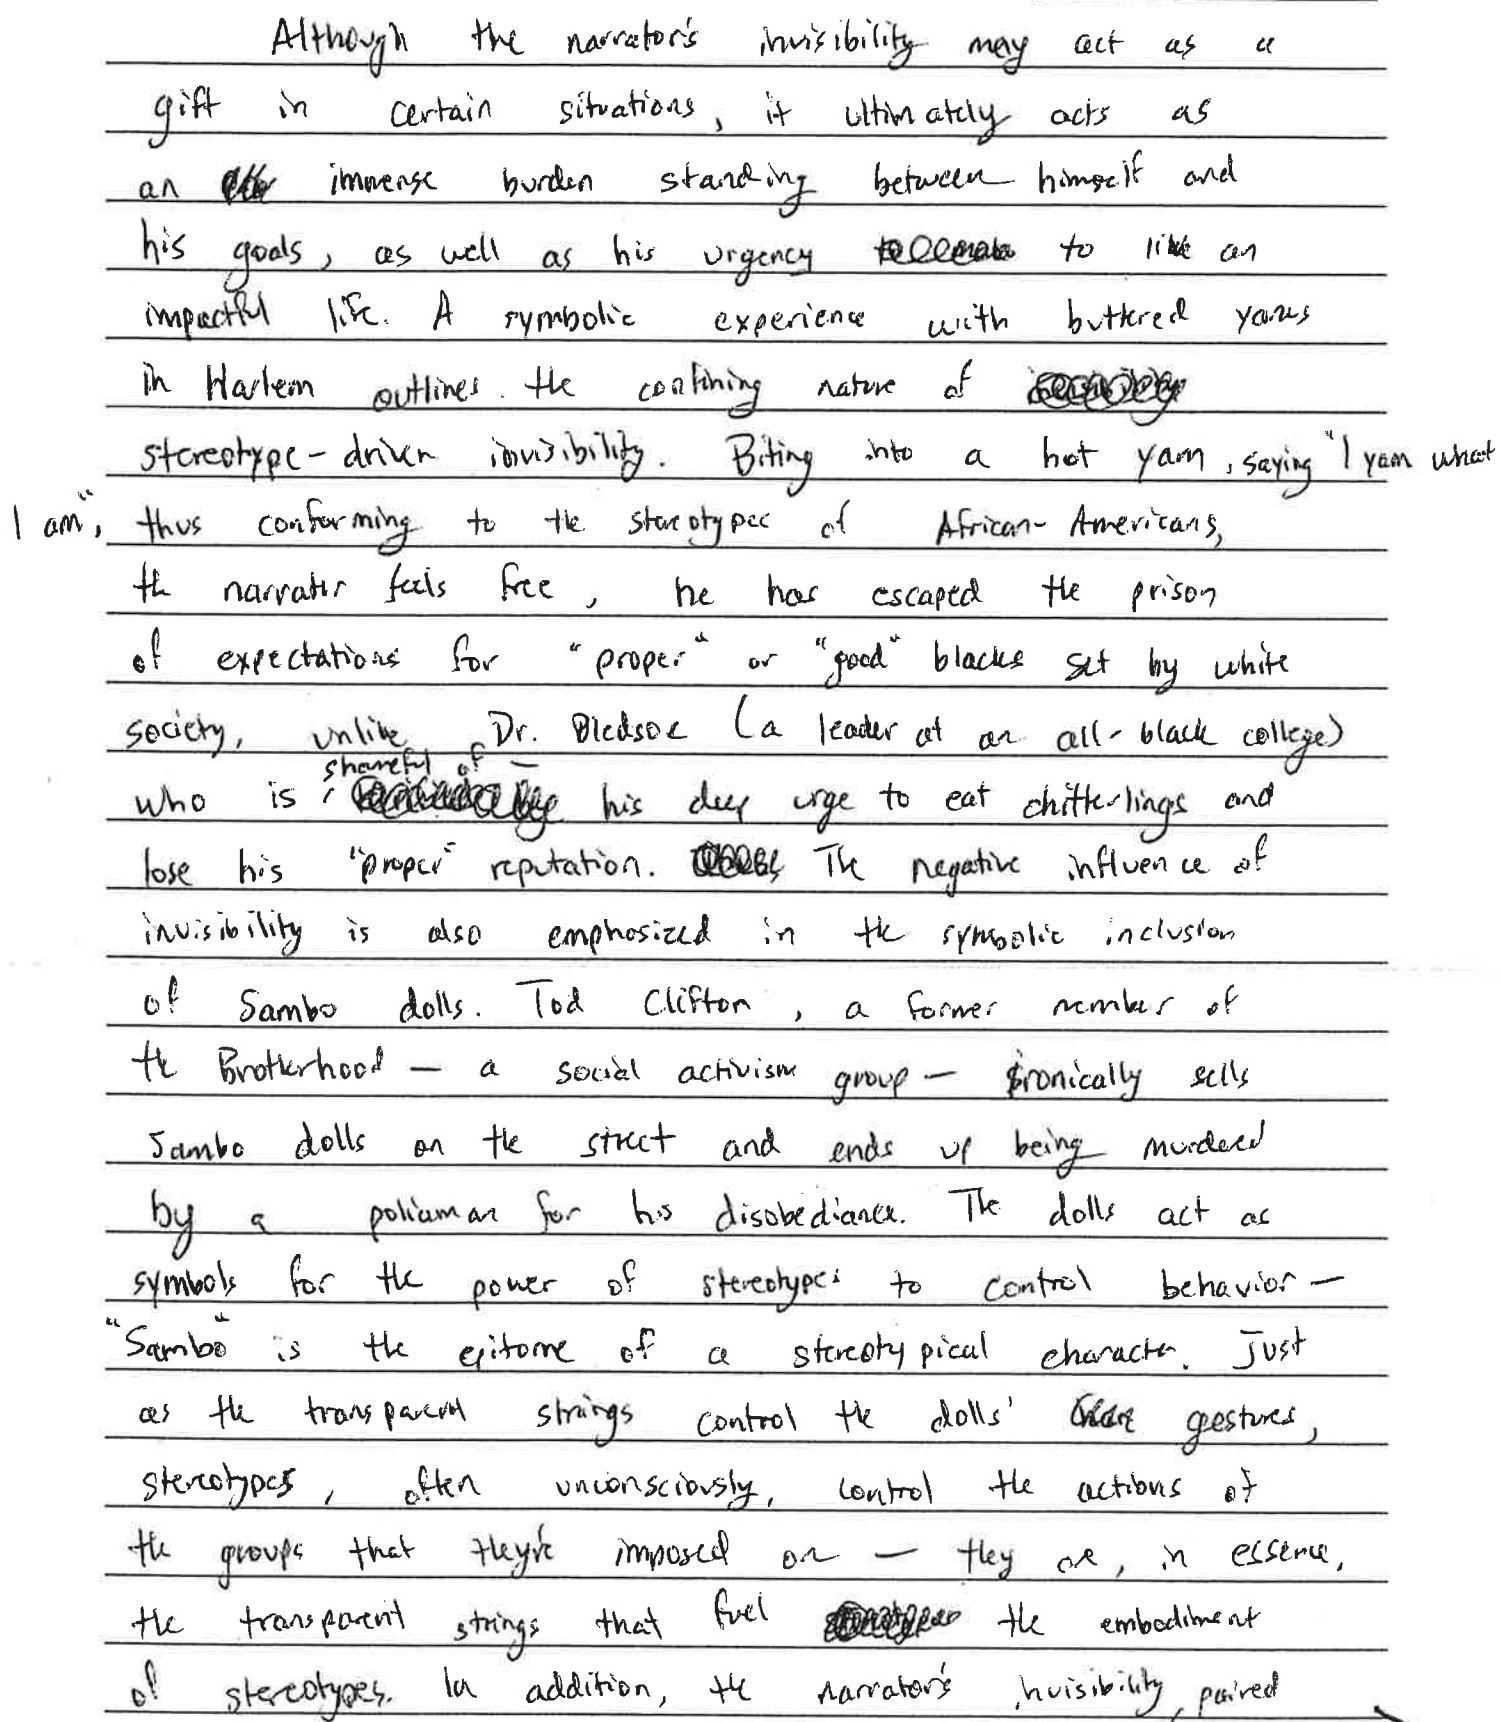 Although the narrator's invisibility may act as a
gift in certain situations, it ultimately acts as
an immense burden standing between himself and
his goals, as well as his urgency to like an
impactful life. A symbolic experience with buttered yams
in Harlem outlines the confining nature of
stereotype-driven invisibility. Biting into a hot yam, saying "I yam what
I am", thus conforming to the stereotypes of African-Americans,
the narrator feels free, he has escaped the prison
of expectations for "proper" or "good" blacks set by white
society, unlike Dr. Bledsoe (a leader at an all-black college)
who is shameful of his deep urge to eat chitterlings and
lose his "proper" reputation. The negative influence of
invisibility is also emphasized in the symbolic inclusion
of Sambo dolls. Tod Clifton, a former member of
the Brotherhood — a social activism group — ironically sells
Sambo dolls on the street and ends up being murdered
by a policeman for his disobediance. The dolls act as
symbols for the power of stereotypes to control behavior —
"Sambo" is the epitome of a stereotypical character. Just
as the transparent strings control the dolls' gestures,
stereotypes, often unconsciously, control the actions of
the groups that they're imposed on — they are, in essence,
the transparent strings that fuel the embodiment
of stereotypes. In addition, the narrator's invisibility, paired